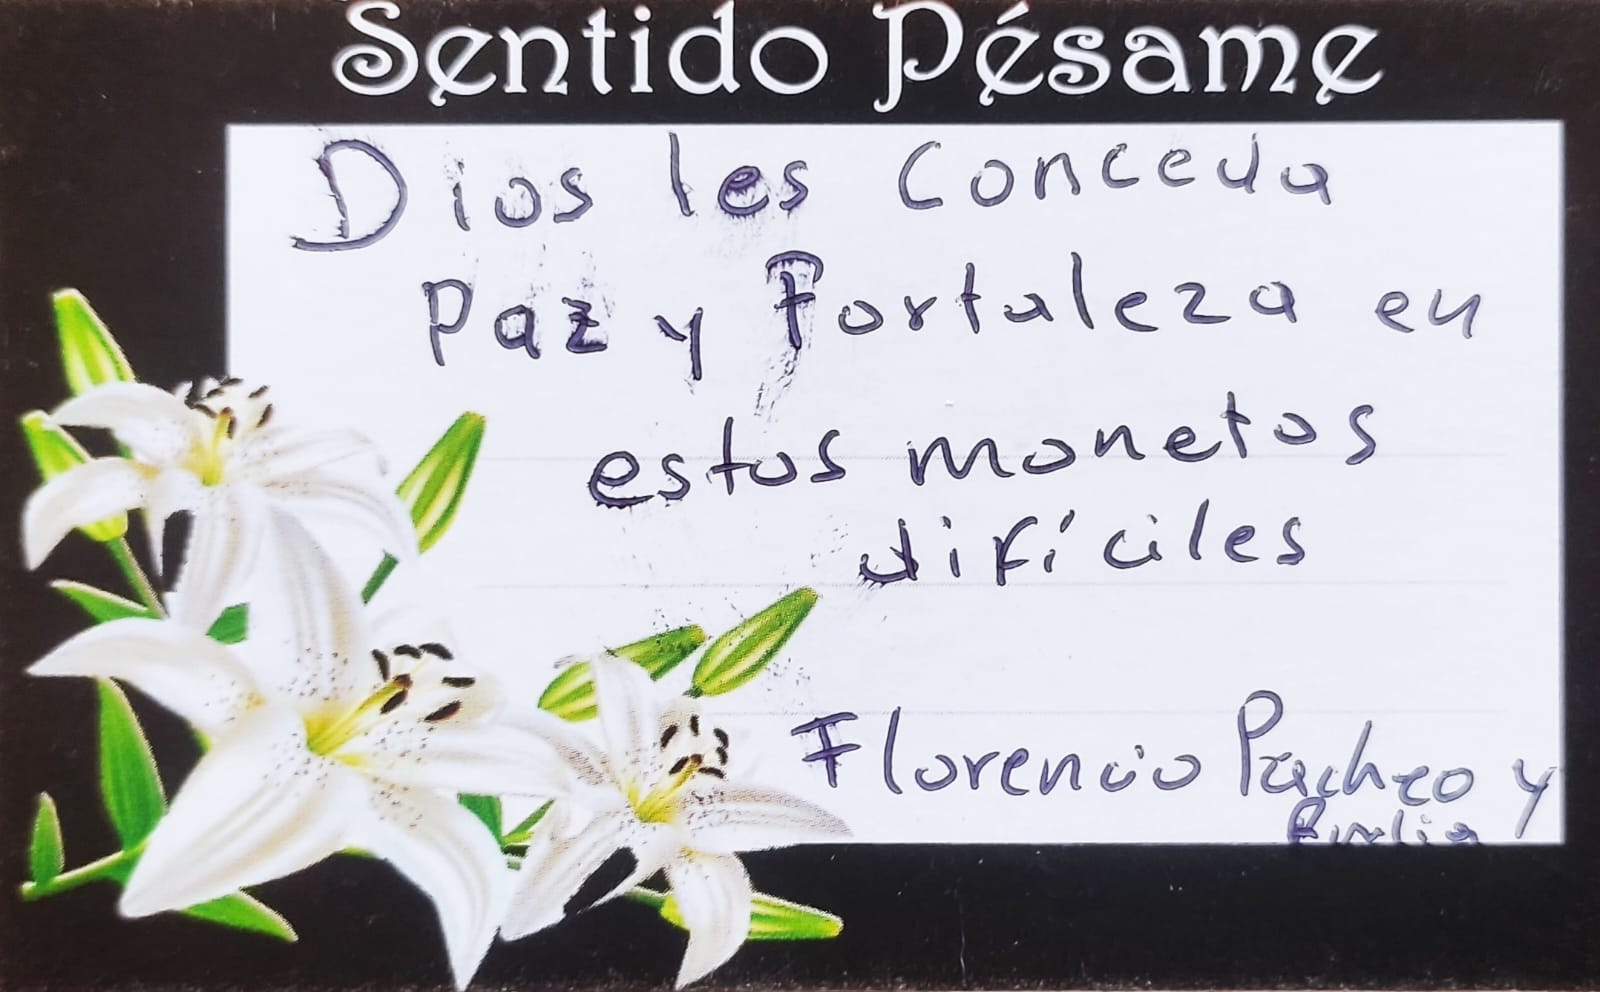 Sentido Pésame
Dios les conceda
Paz y Fortaleza en
estos monetos
difíciles
Florencio Pacheo y